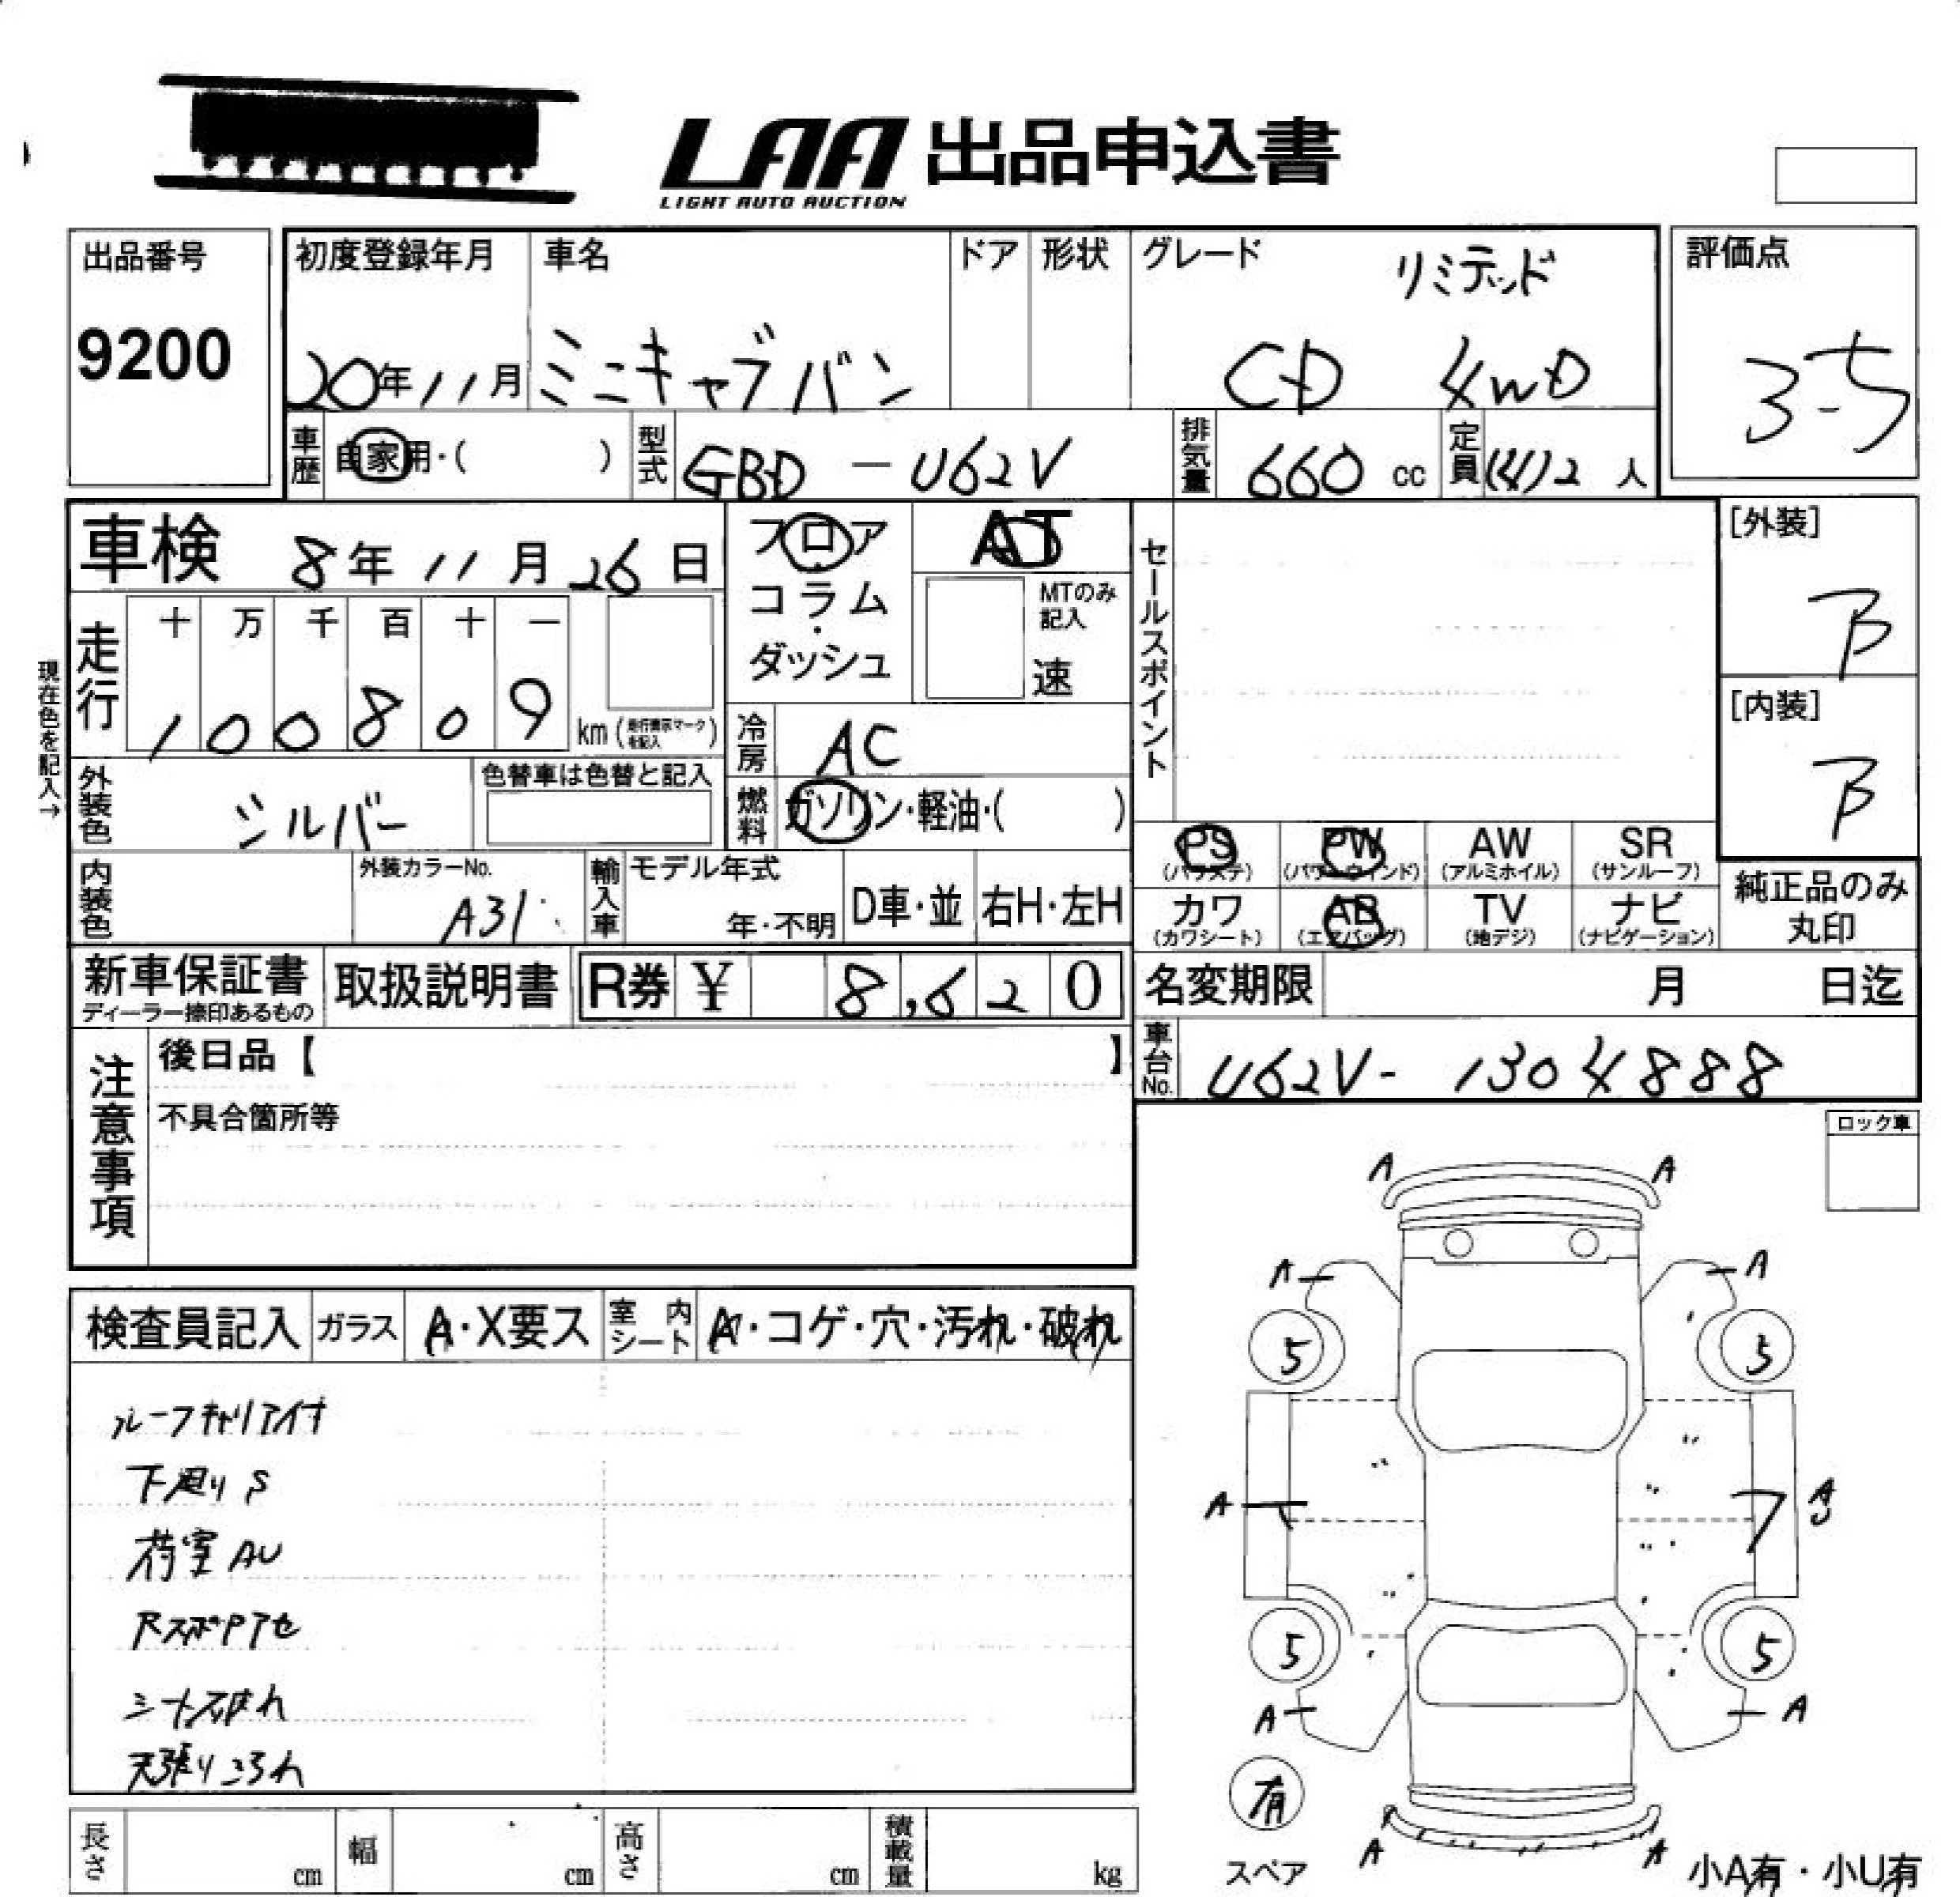 LAA 出品申込書
LIGHT AUTO AUCTION
出品番号
9200
初度登録年月
20年11月
車名
ミニキャブバン
ドア
形状
グレード
リミテッド
CD 4WD
評価点
3-5
車歴
自家用・( )
型式
GBD-U62V
排気量
660 cc
定員
(4)2 人
車検 8年11月26日
フロア
コラム
・
ダッシュ
AT
MTのみ記入
速
セールスポイント
[外装]
B
[内装]
B
現在色を記入→
走行
十 万 千 百 十 一
1 0 0 8 0 9
km (走行表示マークを記入)
冷房
AC
燃料
ガソリン・軽油・( )
外装色
シルバー
色替車は色替と記入
内装色
外装カラーNo.
A31
輸入車
モデル年式
年・不明
D車・並
右H・左H
PS
(パワステ)
PW
(パワーウインド)
AW
(アルミホイル)
SR
(サンルーフ)
カワ
(カワシート)
AB
(エアバッグ)
TV
(地デジ)
ナビ
(ナビゲーション)
純正品のみ
丸印
新車保証書
ディーラー捺印あるもの
取扱説明書
R券 ¥ 8,620
名変期限 月 日迄
車台No.
U62V-1304888
注意事項
後日品【 】
不具合箇所等
ロック車
検査員記入
ガラス
A・X要ス
室内シート
A・コゲ・穴・汚れ・破れ
ルーフキャリア付
下廻りS
荷室AU
RスポPアセ
シート破れ
天張りよごれ
A A
A A
5 5
A
A
U
5 5
A A
有
スペア
A A
小A有・小U有
長さ cm
幅 cm
高さ cm
積載量 kg